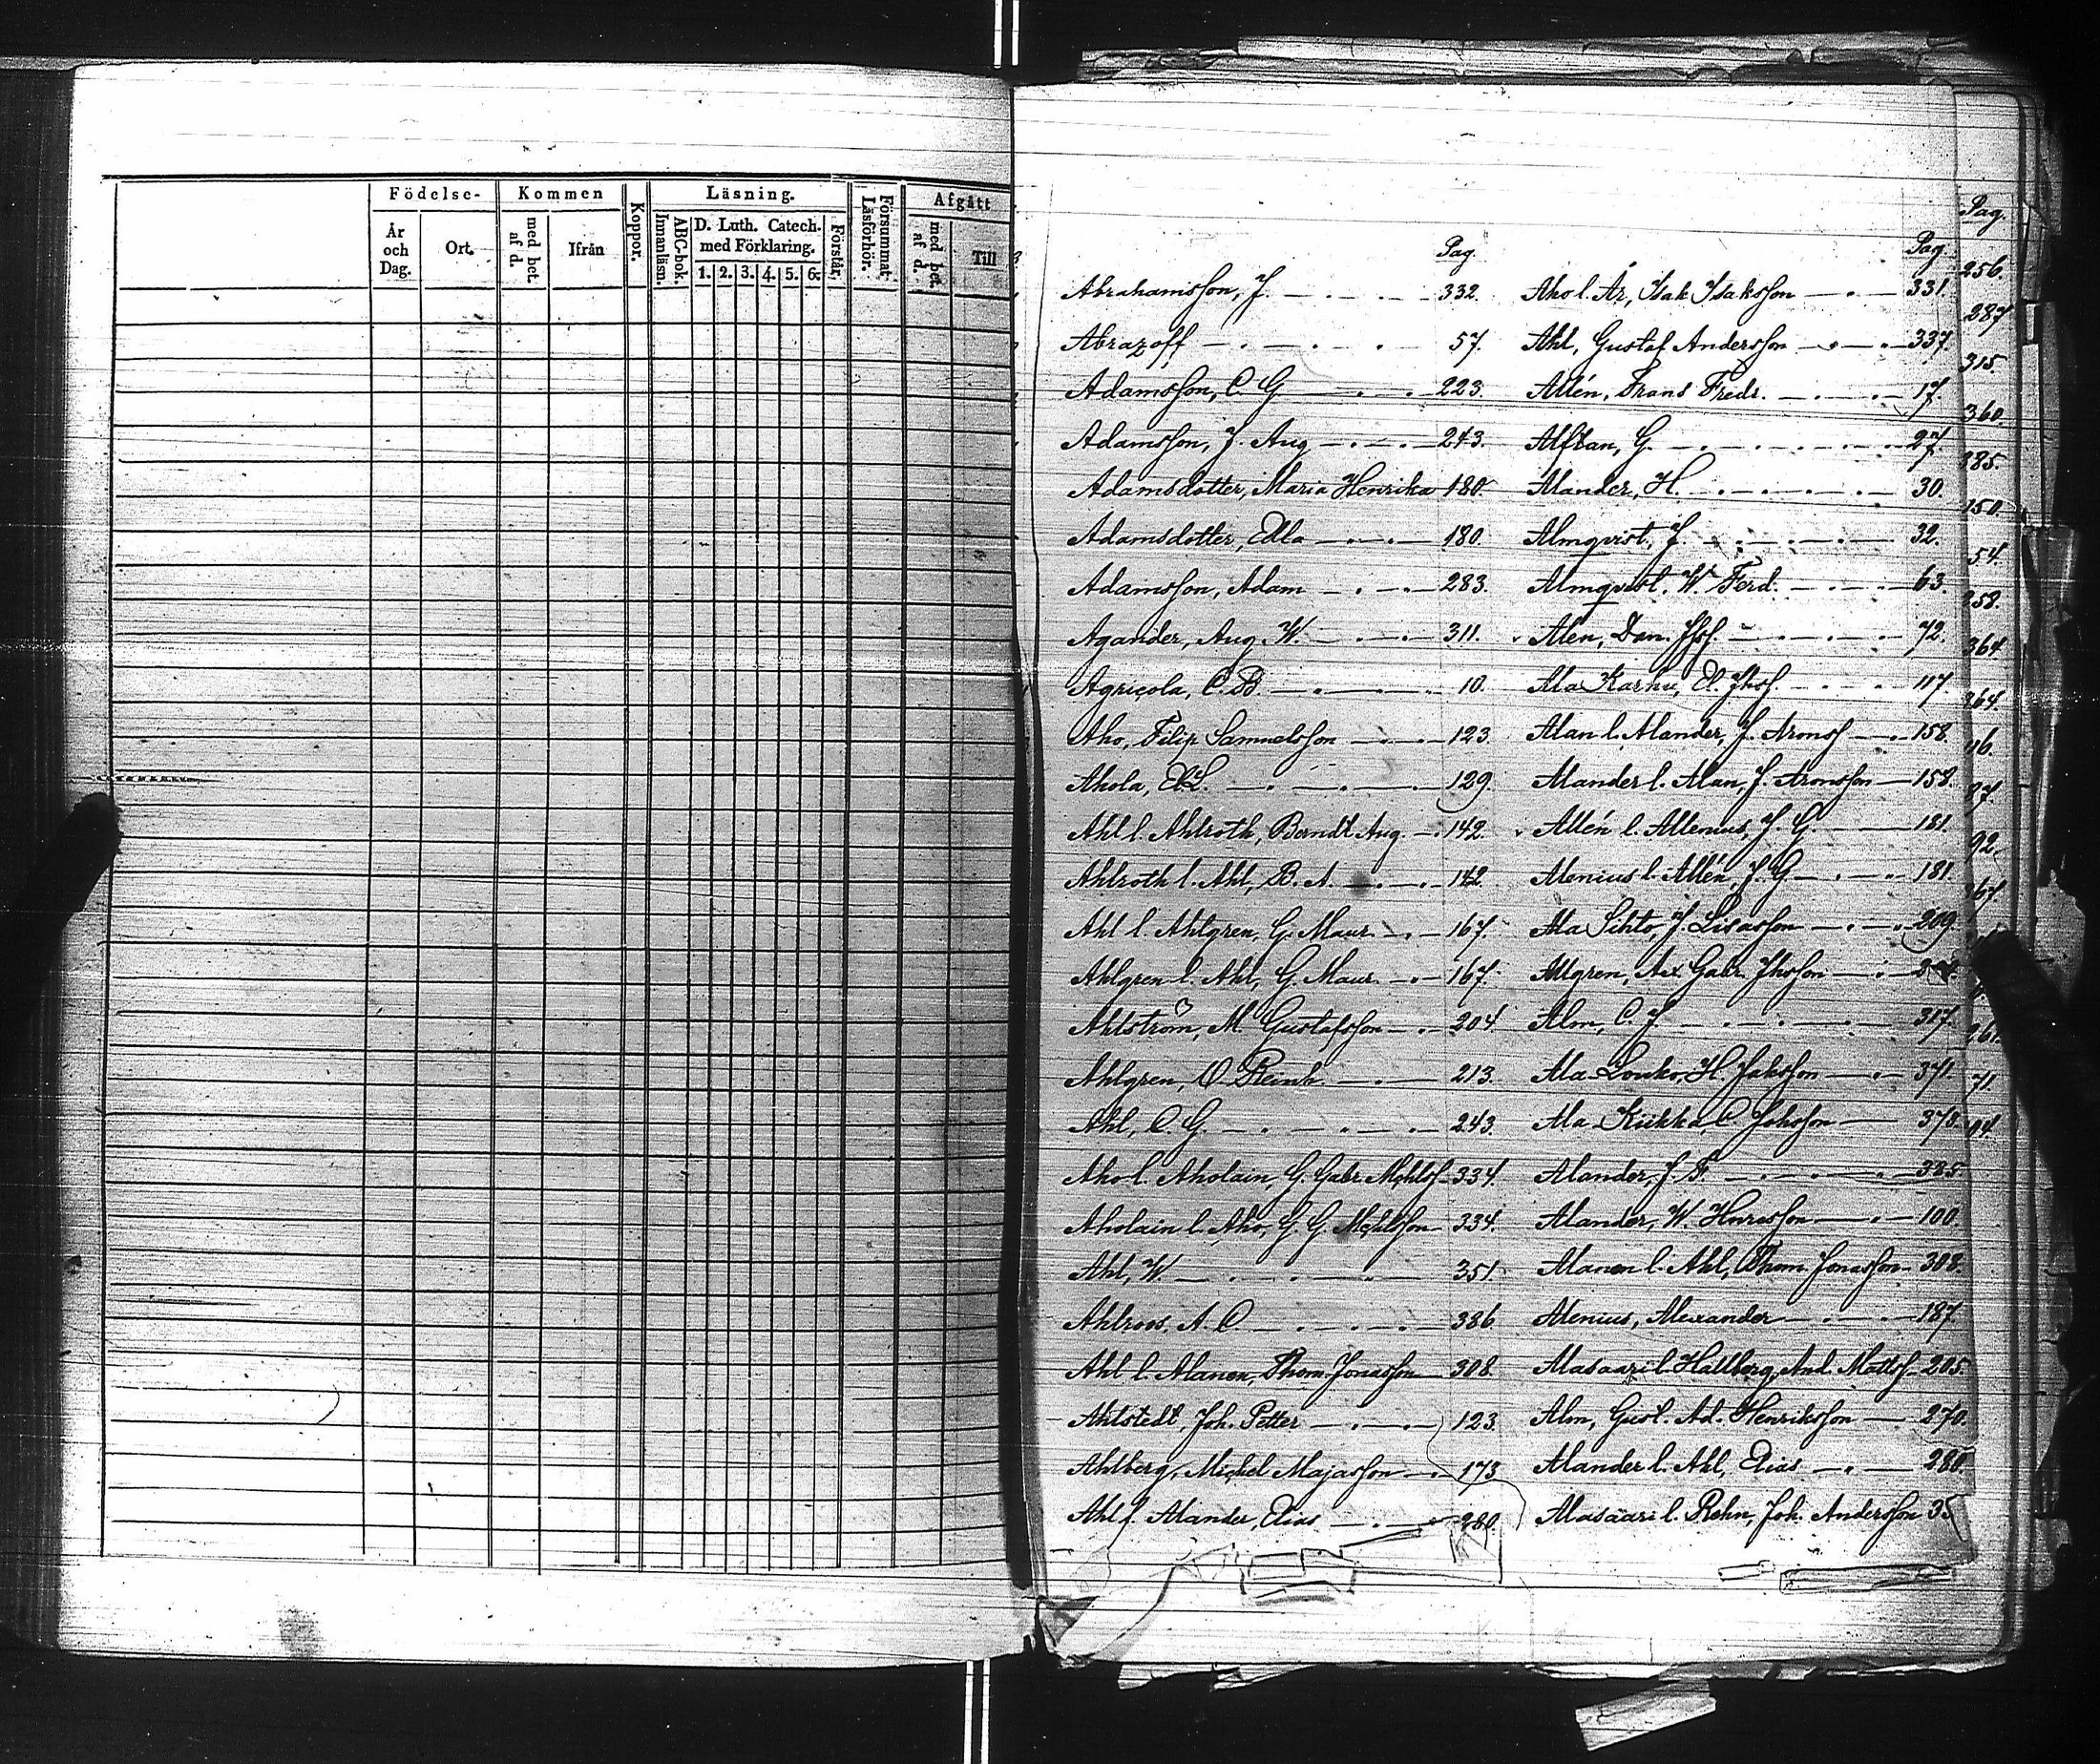 Födelse-
Kommen
Koppor.
Läsning.
Försummat Läsförhör.
Afgått
År och Dag.
Ort.
med bet. af d.
Ifrån
ABC-bok. Innanläsn.
D. Luth. Catech. med Förklaring.
1. 2. 3. 4. 5. 6.
Förstår.
med bet. af d.
Till
Pag.
Abrahamsson, J. 332.
Abrazoff 57.
Adamsson, C. G. 223.
Adamsson, J. Aug 243.
Adamsdotter, Maria Henrika 180.
Adamsdotter, Edla 180.
Adamsson, Adam 283.
Agander, Aug. W. 311.
Agricola, C. B. 10.
Aho, Filip Samuelsson 123.
Ahola, 129.
Ahl l. Ahlroth, Berndt Aug. 142.
Ahlroth l. Ahl, B. A. 142.
Ahl l. Ahlgren, G. Maur. 167.
Ahlgren l. Ahl, G. Maur. 167.
Ahlström, M. Gustafsson 204.
Ahlgren, O. Reinh. 213.
Ahl, C. G. 243.
Aho l. Aholain, G. Gabr. Mchlsf 334.
Aholain l. Aho, G. G. Mchlsson 334.
Ahl, W. 351.
Ahlroos, A. C. 386
Ahl l. Alanen, Thom. Jonasson 308.
Ahlstedt, Joh. Petter 123.
Ahlberg, Michel Majasson 173
Ahl l. Alander, Elias 280.
Pag.
Aho l. Är, Isak Isaksson 331.
Ahl, Gustaf Andersson 337.
Allén, Frans Fredr. 17.
Alftan, G. 27.
Alander, H. 30.
Almqvist, J. 32.
Almqvist, W. Ferd. 63.
Alen, Dan. Jhsf. 72.
Ala Karhu, E. Jhsf. 117.
Alan l. Alander, J. Aronsf 158.
Alander l. Alan, J. Aronsson 158.
Allén l. Allenius, J. G. 181.
Alenius l. Allén, J. G. 181.
Ala Sihto, J. Lisasson 209.
Allgren, Ax. Gabr. Jhsson
Alm, C. J. 317.
Ala-Louko, H. Jakssson 371.
Ala Kiikka, C. Johsson 378.
Alander, J. F. 385
Alander, W. Hnrsson 100
Alanen l. Ahl, Thom. Jonasson 308.
Alenius, Alexander 187.
Alasaari l. Hallberg, And. Mattsf. 205.
Alm, Gust. Ad. Henriksson 270.
Alander l. Ahl, Elias 280.
Alasaari l. Rehn, Joh. Andersson 35
Pag.
256.
287
315.
360.
385.
150.
54.
258.
364
264.
116.
87.
92.
167.
261.
71
104.